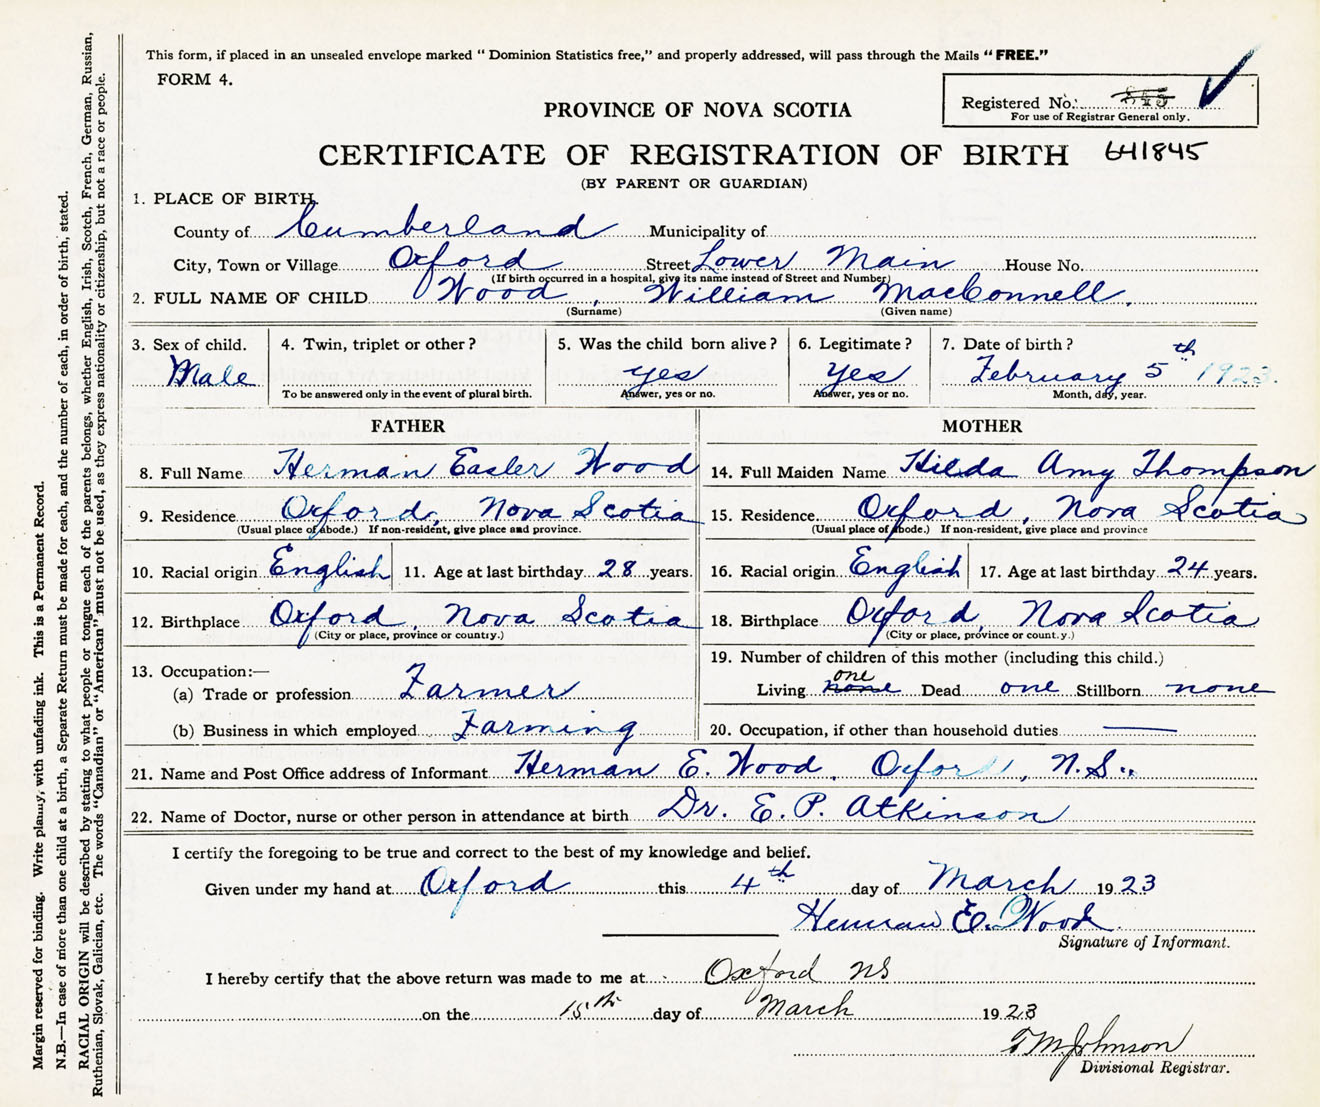 This form, if placed in an unsealed envelope marked "Dominion Statistics free," and properly addressed, will pass through the Mails "FREE."
FORM 4.
Registered No.
For use of Registrar General only.
PROVINCE OF NOVA SCOTIA
CERTIFICATE OF REGISTRATION OF BIRTH 641845
(BY PARENT OR GUARDIAN)
1. PLACE OF BIRTH.
County of Cumberland Municipality of
City, Town or Village Oxford Street Lower Main House No.
(If birth occurred in a hospital, give its name instead of Street and Number)
2. FULL NAME OF CHILD Wood, William MacConnell.
(Surname) (Given name)
3. Sex of child. 4. Twin, triplet or other? 5. Was the child born alive? 6. Legitimate? 7. Date of birth?
Male yes Yes February 5th 1923.
To be answered only in the event of plural birth. Answer, yes or no. Answer, yes or no. Month, day, year.
FATHER MOTHER
8. Full Name Herman Easler Wood 14. Full Maiden Name Hilda Amy Thompson
9. Residence Oxford, Nova Scotia 15. Residence Oxford, Nova Scotia
(Usual place of abode.) If non-resident, give place and province. (Usual place of abode.) If non-resident, give place and province
10. Racial origin English 11. Age at last birthday 28 years. 16. Racial origin English 17. Age at last birthday 24 years.
12. Birthplace Oxford, Nova Scotia 18. Birthplace Oxford, Nova Scotia
(City or place, province or country.) (City or place, province or count.y.)
13. Occupation:— 19. Number of children of this mother (including this child.)
one
(a) Trade or profession Farmer Living none Dead one Stillborn none
(b) Business in which employed Farming 20. Occupation, if other than household duties —
21. Name and Post Office address of Informant Herman E. Wood, Oxford, N.S..
22. Name of Doctor, nurse or other person in attendance at birth Dr. E. P. Atkinson
I certify the foregoing to be true and correct to the best of my knowledge and belief.
Given under my hand at Oxford this 4th day of March 1923
Herman E. Wood
Signature of Informant.
I hereby certify that the above return was made to me at Oxford NS
on the 15th day of March 1923
Johnson
Divisional Registrar.
Margin reserved for binding. Write plainly, with unfading ink. This is a Permanent Record.
N.B.—In case of more than one child at a birth, a Separate Return must be made for each, and the number of each, in order of birth, stated.
RACIAL ORIGIN will be described by stating to what people or tongue each of the parents belongs, whether English, Irish, Scotch, French, German, Russian,
Ruthenian, Slovak, Galician, etc. The words "Canadian" or "American" must not be used, as they express nationality or citizenship, but not a race or people.